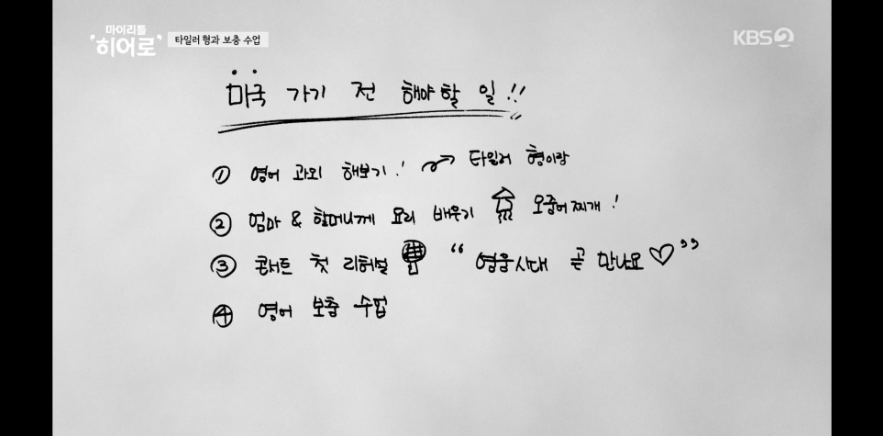 마이리틀
'히어로'
타일러 형과 보충 수업
KBS2
미국 가기 전 해야할 일!!
① 영어 과외 해보기! → 타일러 형이랑
② 엄마 & 할머니께 요리 배우기 오징어찌개!
③ 콘서트 첫 리허설 " 영웅시대 곧 만나요♡"
④ 영어 보충 수업